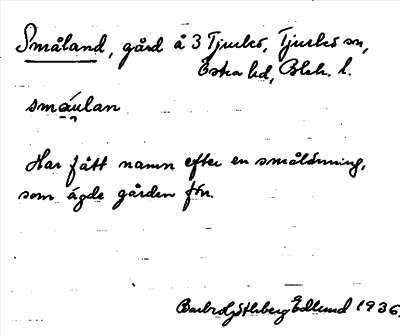 Småland, gård å 3 Tjurkö, Tjurkö sn,
Östra hd, Blek. l.
småulan
Har fått namn efter en smålänning,
som ägde gården förr.
Barbro Götheberg Edlund 1936.